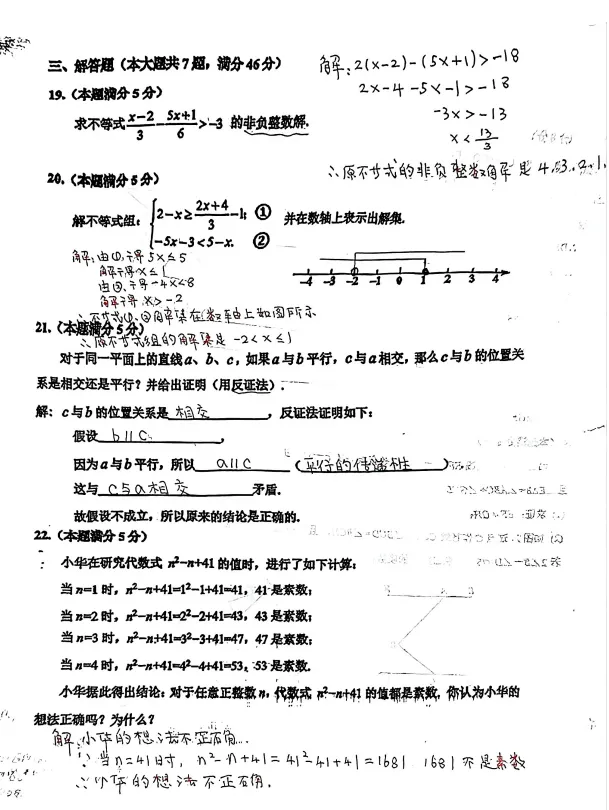 三、解答题（本大题共7题，满分46分）
19.（本题满分5分）
求不等式 (x−2)/3 − (5x+1)/6 > −3 的非负整数解.
解：2(x−2)−(5x+1)>−18
2x−4−5x−1>−18
−3x>−13
x<13/3
∴原不等式的非负整数解是4.3.2.1.
20.（本题满分5分）
解不等式组：{2−x≥(2x+4)/3−1; ① −5x−3<5−x. ② 并在数轴上表示出解集.
解：由①,得5x≤5
解得x≤1
由②,得−4x<8
解得x>−2
-4 -3 -2 -1 0 1 2 3 4
∴不等式①,②解集在数轴上如图所示
∴原不等式组的解集是 −2<x≤1
21.（本题满分5分）
对于同一平面上的直线a、b、c，如果a与b平行，c与a相交，那么c与b的位置关
系是相交还是平行？并给出证明（用反证法）.
解：c与b的位置关系是 相交 ，反证法证明如下：
假设 b∥c ，
因为a与b平行，所以 a∥c （平行的传递性）
这与 c与a相交 矛盾.
故假设不成立，所以原来的结论是正确的.
22.（本题满分5分）
小华在研究代数式 n²−n+41 的值时，进行了如下计算：
当n=1时，n²−n+41=1²−1+41=41，41是素数；
当n=2时，n²−n+41=2²−2+41=43，43是素数；
当n=3时，n²−n+41=3²−3+41=47，47是素数；
当n=4时，n²−n+41=4²−4+41=53，53是素数.
小华据此得出结论：对于任意正整数n，代数式 n²−n+41 的值都是素数，你认为小华的
想法正确吗？为什么？
解：小华的想法不正确.
∵当n=41时，n²−n+41=41²−41+41=1681 1681不是素数
∴小华的想法不正确.